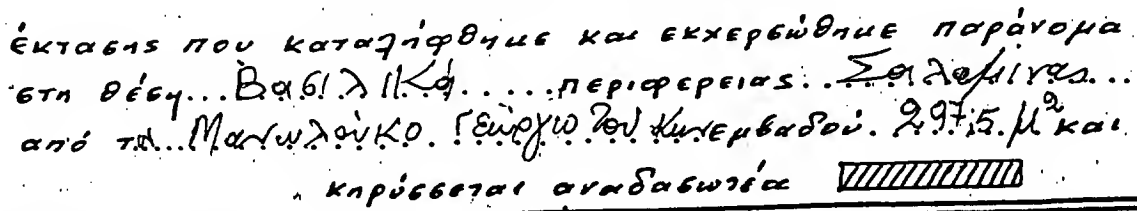 έκτασης που καταλήφθηκε και εκχερσώθηκε παράνομα
στη θέση...Βασιλικά.....περιφερειας..Σαλαμίνας...
από τον...Μανωλούκο Γεώργιο του Κων εμβαδού.297,5 μ² και
κηρύσσεται αναδασωτέα